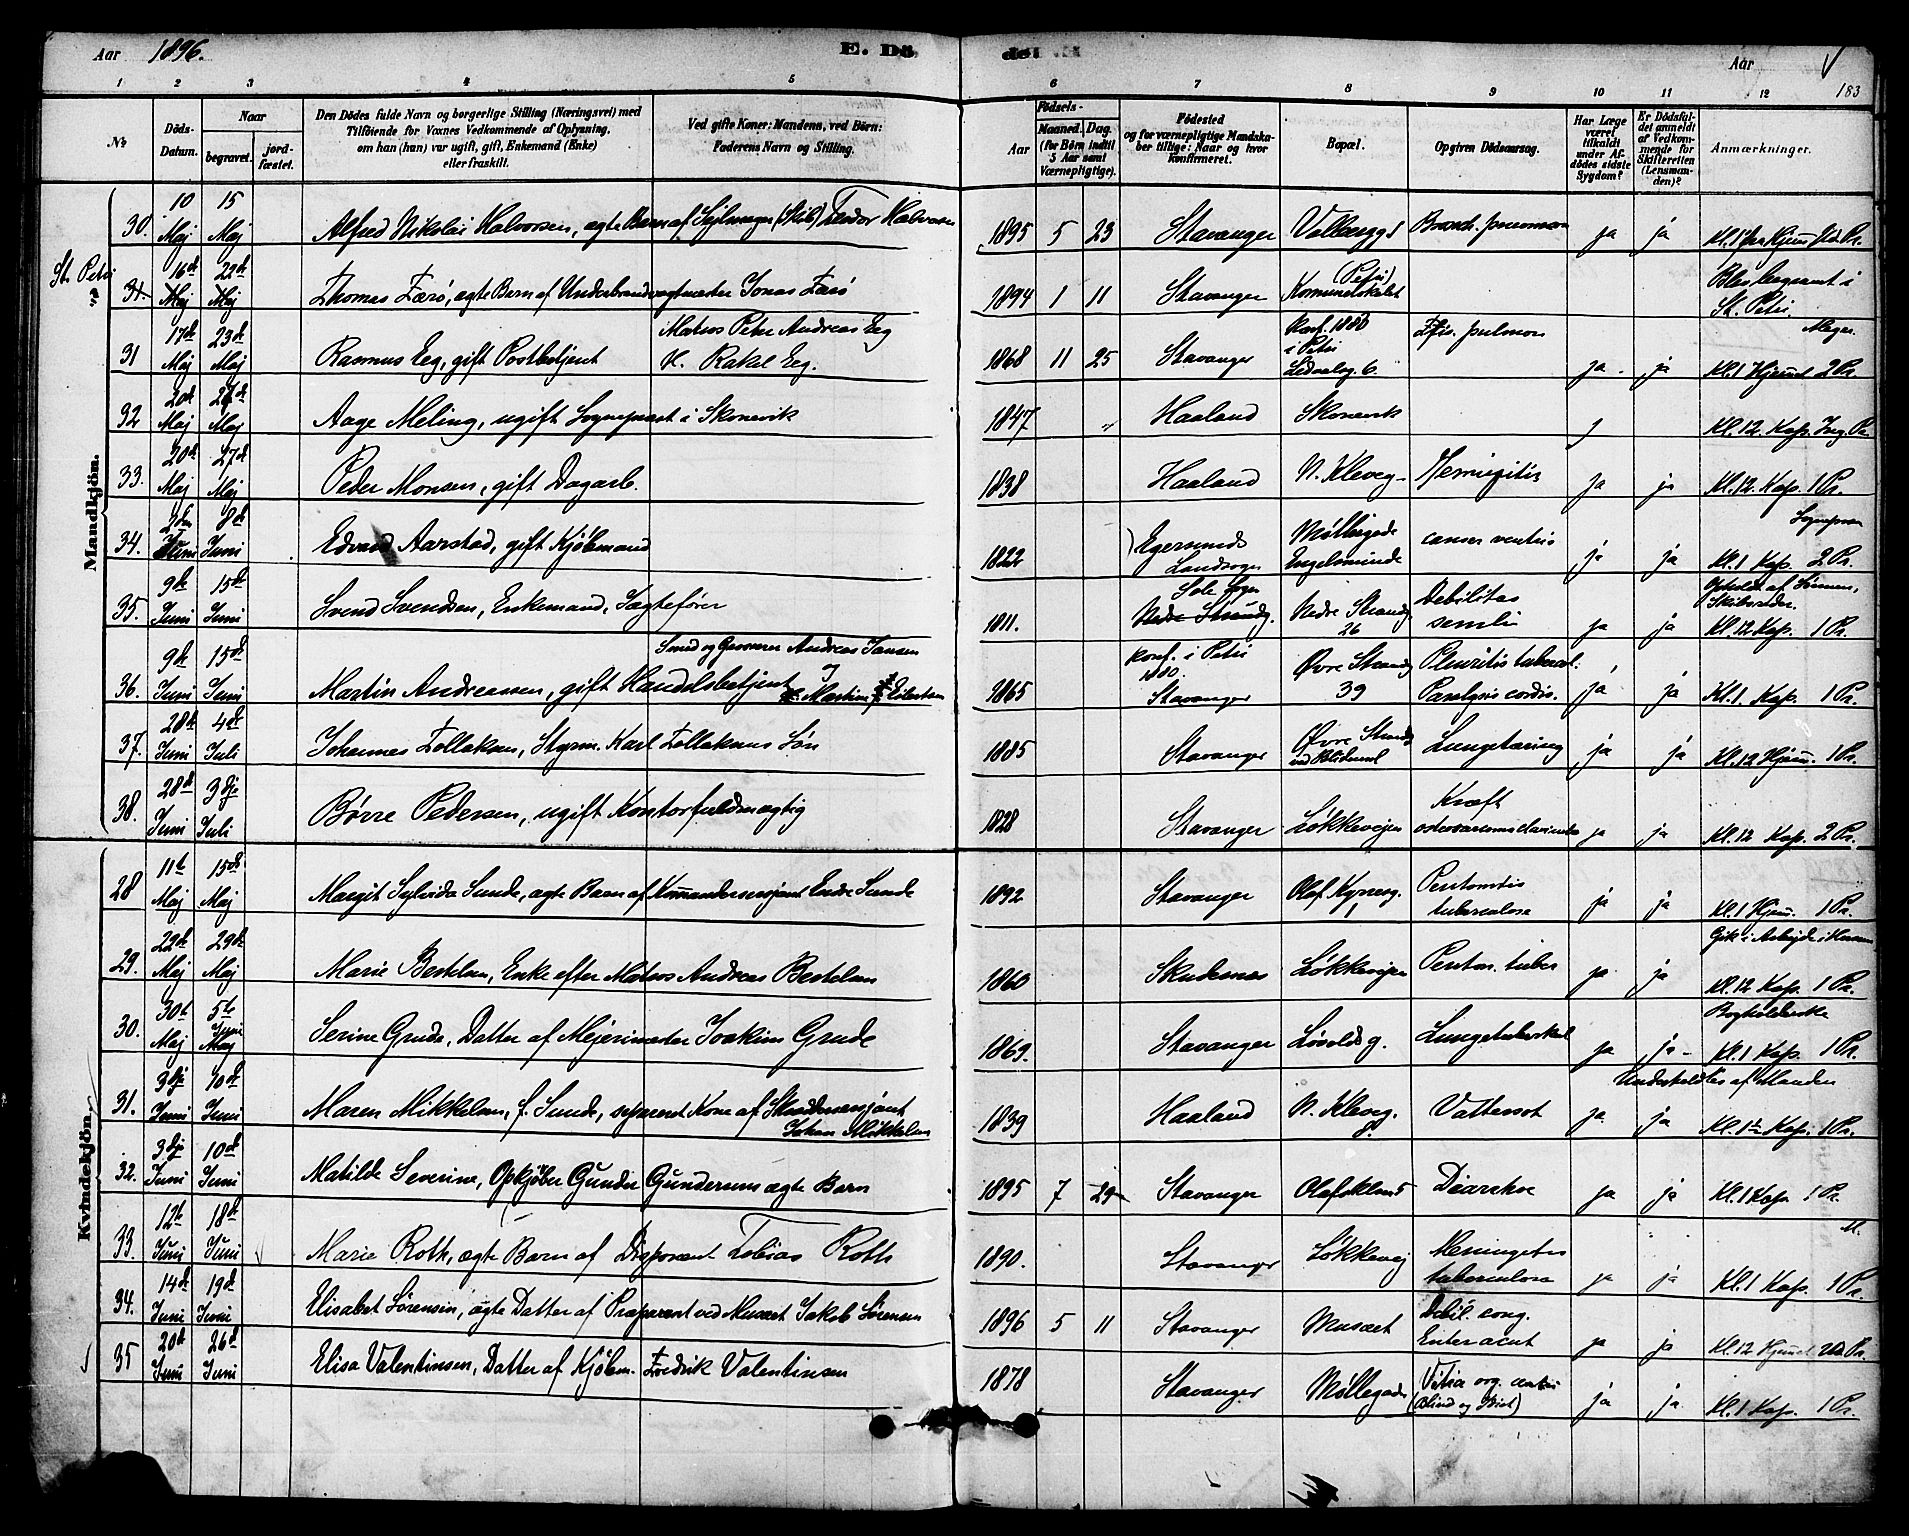 Aar 1896. E. Dö de. Aar
183
1 2 3 4 5 6 7 8 9 10 11 12
No
Döds-Datum.
Naar
begravet.
jord-fæstet.
Den Dödes fulde Navn og borgerlige Stilling (Næringsvei) med
Tilföiende for Voxnes Vedkommende af Oplysning,
om han (hun) var ugift, gift, Enkemand (Enke)
eller fraskilt.
Ved gifte Koner: Mandens, ved Börn:
Faderens Navn og Stilling.
Födsels-
Aar
Maaned. Dag.
(for Börn indtil
5 Aar samt
Værnepligtige).
Födested
og for værnepligtige Mandska-
ber tillige: Naar og hvor
konfirmeret.
Bopæl.
Opgiven Dödsaarsag.
Har Læge
været
tilkaldt
under Af-
dödes sidste
Sygdom?
Er Dödsfal-
det anmeldt
af Vedkom-
mende for
Skifteretten
(Lensman-
den)?
Anmærkninger.
Mandkjön.
30. 10 Maj 15 Maj Alfred Nikolai Halvorsen, ægte Barn af Teodor Halvorsen 1895 5 23 Stavanger ja ja
St. Petri 31. 16de Maj 22de Maj Thomas Færö, ægte Barn af Underbrandvagtmester Jonas Færö 1894 1 11 Stavanger (Petri) Komunelokalet Blev begravet i St. Petri.
31 17de Maj 23de Maj Rasmus Eeg, gift Postbetjent Matros Peter Andreas Eeg H. Rakel Eeg. 1868 11 25 Stavanger Konf. i Petri Ledaalsg. 6. pulmon ja ja Kl. 1 Hjemmet 2 Pr.
32 20de Maj 27de Maj Aage Meling, ugift Sogneprest i Skonevik 1847 Haaland Skonevik Kl. 12. Kap.
33. 20de Maj 27de Maj Peder Monsen, gift Dagarb. 1838 Haaland N. Kleveg ja ja Kl. 12. Kap. 1 Pr.
34. Juni 8de Juni Edvard Aarstad, gift Kjöbmand 1822 Egersunds Landsogn Möllegade Engelsminde cancer ventris ja ja Kl. 1 Kap. 2 Pr.
35. 9de Juni 15de Juni Svend Svendsen, Enkemand, Jagtefører 1811. Sole Sogn Nedre Strandg. Nedre Strandg 26 Debilitas senilis ja ja Ophold af Sönnen, Skibsreder. Kl. 12 Kap. 1 Pr.
36. 9de Juni 15de Juni Martin Andreassen, gift Handelsbetjent Smed og Andreas Jansen 1865 Konf. i Petri 1880. Stavanger Øvre Strandg 39 Pleuritis tubercul. Paralysis cordis. ja ja Kl. 1 Kap. 1 Pr.
37. 28de Juni 4de Juli Johannes Tollaksen, Styrm. Karl Tollaksens Sön 1885 Stavanger Øvre Strandg Lungetæring ja ja Kl. 12 Hjem. 1 Pr.
38. 28de Juni 3dje Juli Børre Pedersen, ugift Kontorfuldmægtig 1828 Stavanger Løkkevejen Kræft ja ja Kl. 12 Kap. 2 Pr.
Kvindekjön.
28 11te Maj 15de Maj Margit Sylvida Sunde, ægte Barn af Kommandersersjant Endre Sunde 1892 Stavanger Olaf Kyrresg. 1 tuberculose ja ja Kl. 1 Hjem. 1 Pr.
29. 22de Maj 29de Maj Marie Bertelsen, Enke efter Matros Andreas Bertelsen 1860 Skudenes Løkkevejen Periton. tuber ja ja Gik i Arbejde i Husene Kl. 12 Kap. 1 Pr.
30. 30te Maj 5te Juni Maj Serine Grude, Datter af Mejerimester Joakim Grude 1869. Stavanger Løvoldsg. Lungetuberkel ja ja Bogholderske Kl. 1 Kap. 1 Pr.
31. 3dje Juni 10de Juni Maren Mikkelsen, f. Sunde, separert Kone af Johan Mikkelsen 1839 Haaland N. Kleveg. 8. Vattersot ja ja Underholdtes af Manden Kl. 12 Kap. 1 Pr.
32. 3dje Juni 10de Juni Matilde Severine, Opkjøber Gunder Gundersens ægte Barn 1895 7 29 Stavanger Olafsklev 5 Diarrhoe ja ja Kl. 1 Kap. 1 Pr.
33. 12te Juni 18de Juni Marie Roth, ægte Barn af Disponent Tobias Roth 1890. Stavanger Løkkevej Meningitis tuberculosa ja ja M. Kl. 1 Kap. 1 Pr.
34. 14de Juni 19de Juni Elisabet Sørensen, ægte Datter af Præparant ved Musæet Jakob Sørensen 1896 5 11 Stavanger Musæet Debil. cong. Enter acut ja ja Kl. 12 Hjemmet Pr.
35 20de Juni 26de Juni Elisa Valentinsen, Datter af Kjöbm. Fredrik Valentinsen 1878 Stavanger Möllegade Vitia org. cordis (Blind og ) ja ja Kl. 1 Kap. 1 Pr.